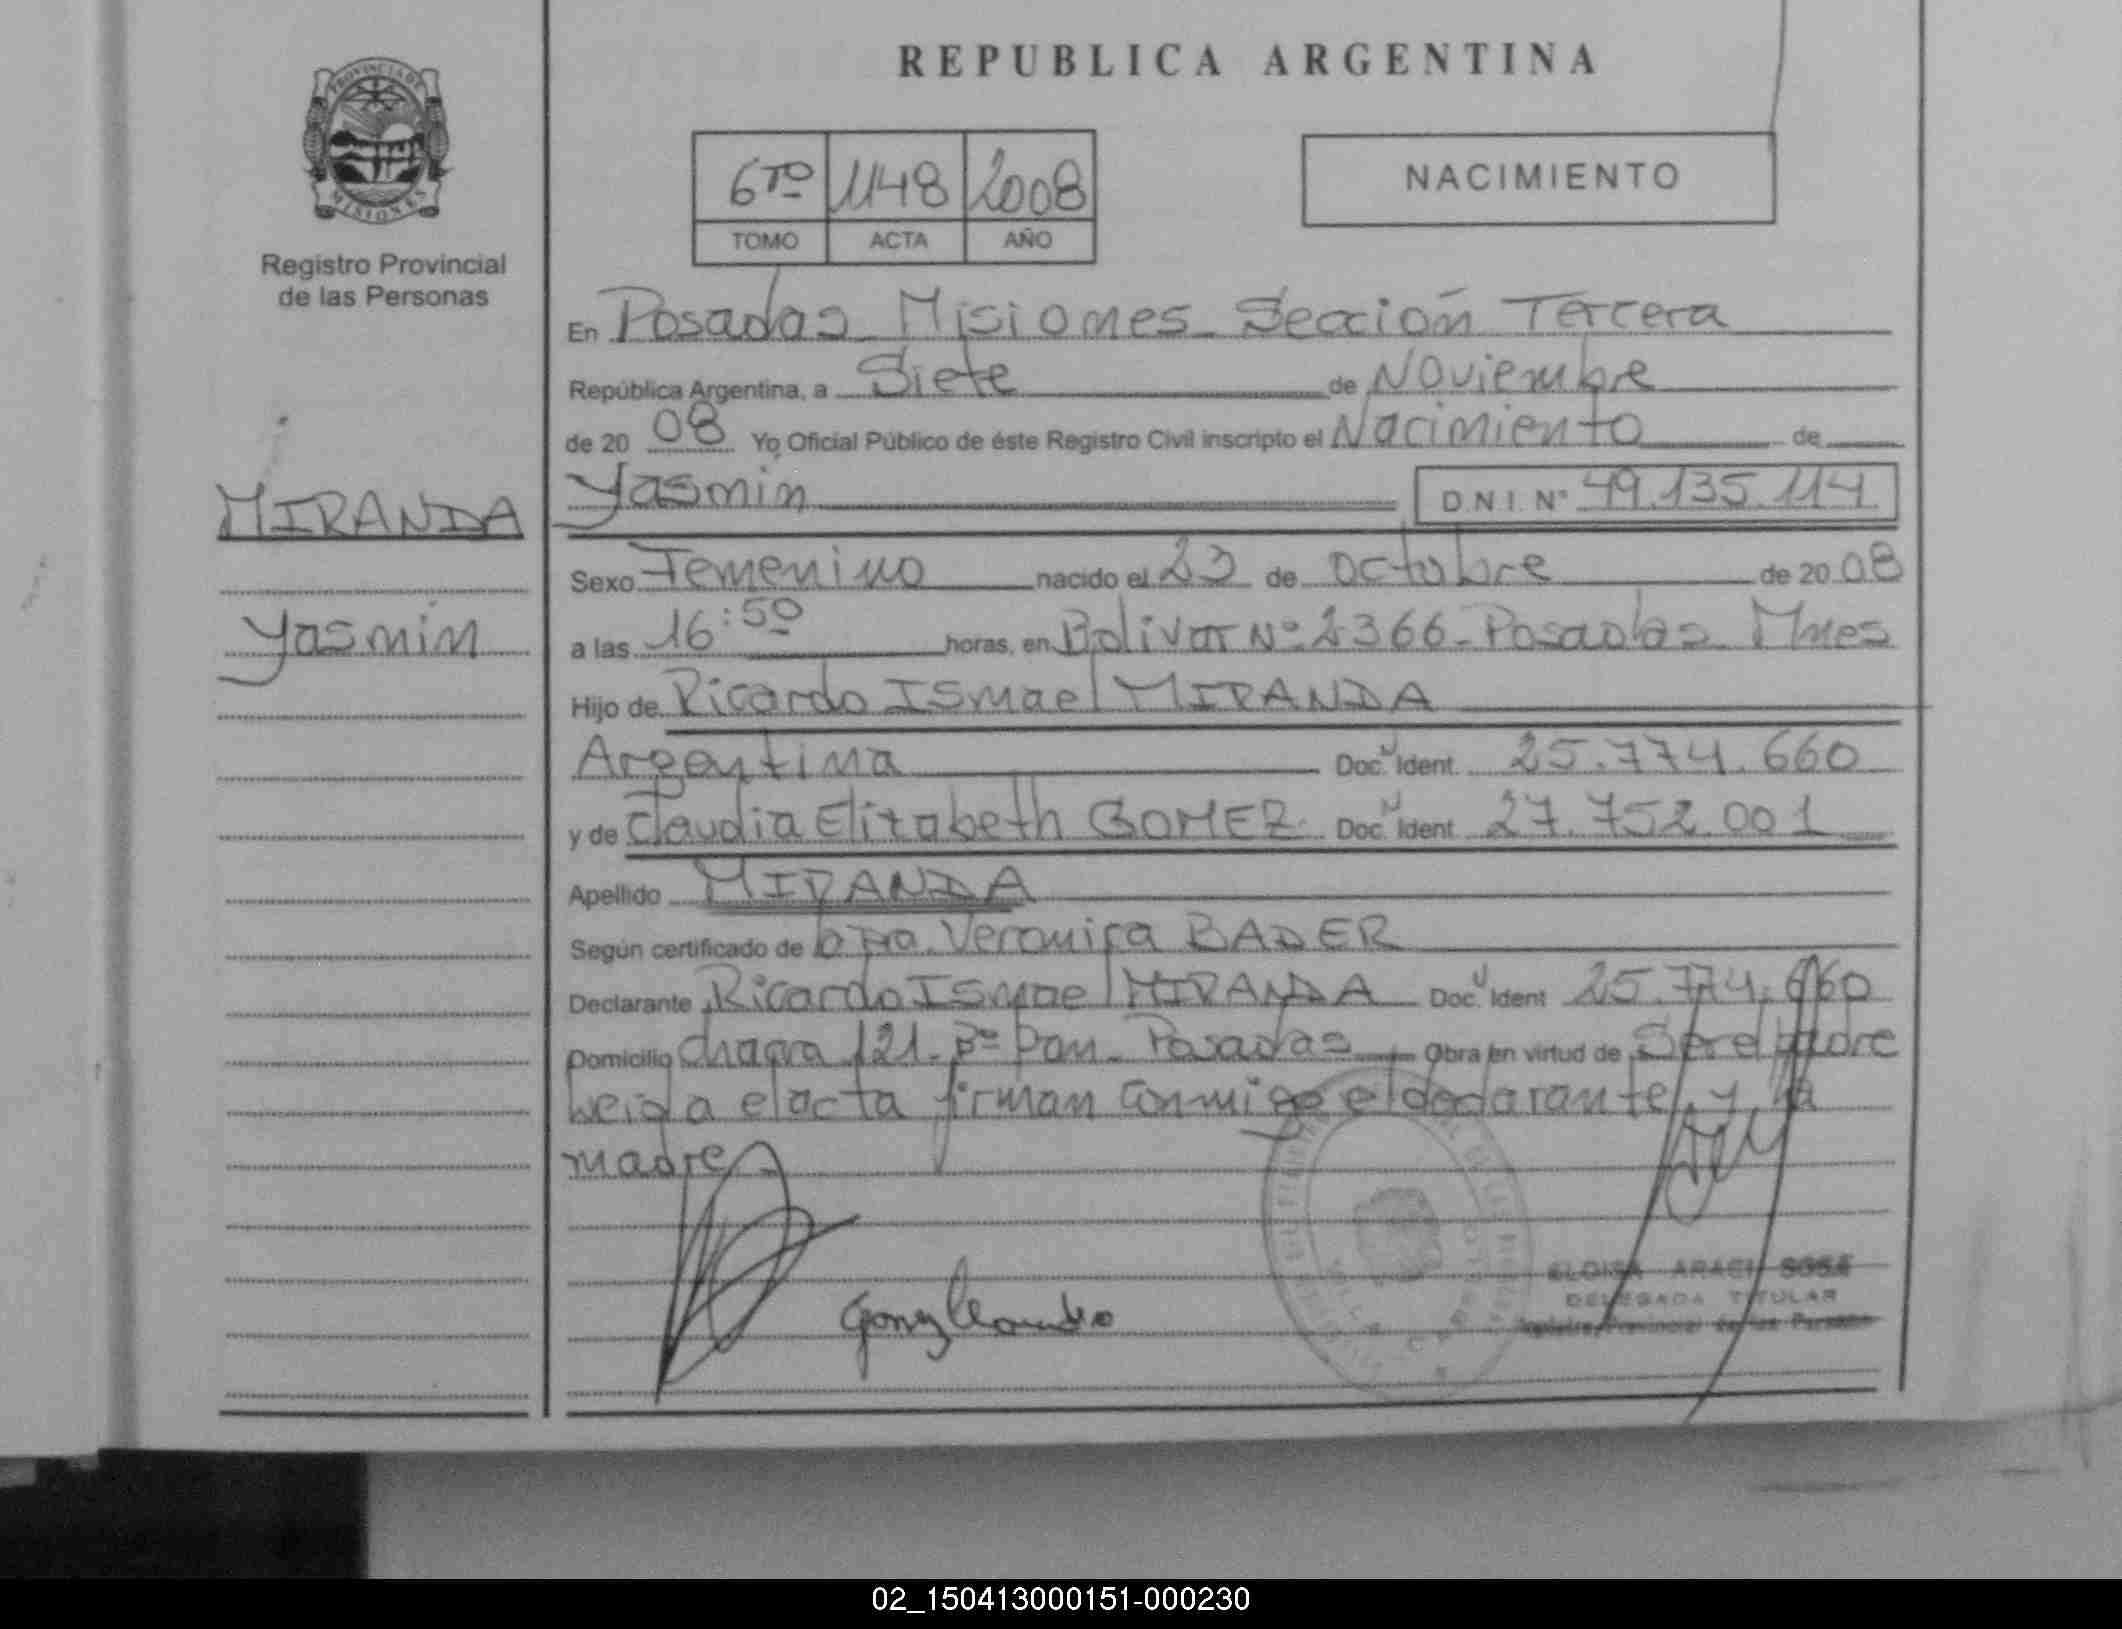 REPUBLICA ARGENTINA
PROVINCIA DE
MISIONES
Registro Provincial
de las Personas
6TO 1148 2008
TOMO ACTA AÑO
NACIMIENTO
En Posadas Misiones Sección Tercera
República Argentina, a Siete de Noviembre
de 20 08 Yo Oficial Público de éste Registro Civil inscripto el Nacimiento de
Yasmin D.N.I. Nº 49.135.114
MIRANDA
Yasmin
Sexo Femenino nacido el 23 de octubre de 20 08
a las 16:50 horas, en Bolivar Nº 2366 - Posadas Mnes
Hijo de Ricardo Ismael MIRANDA
Argentina Doc. Ident. 25.774.660
y de Claudia Elizabeth GOMEZ Doc. Ident 27.752.001
Apellido MIRANDA
Según certificado de Veronica BADER
Declarante Ricardo Ismael MIRANDA Doc. Ident 25.774.660
Domicilio chacra 121. Posadas Obra en virtud de Ser el padre
Leida el acta firman conmigo el declarante y la
madre
DELEGADA TITULAR
Registro Provincial de las Personas
02_150413000151-000230